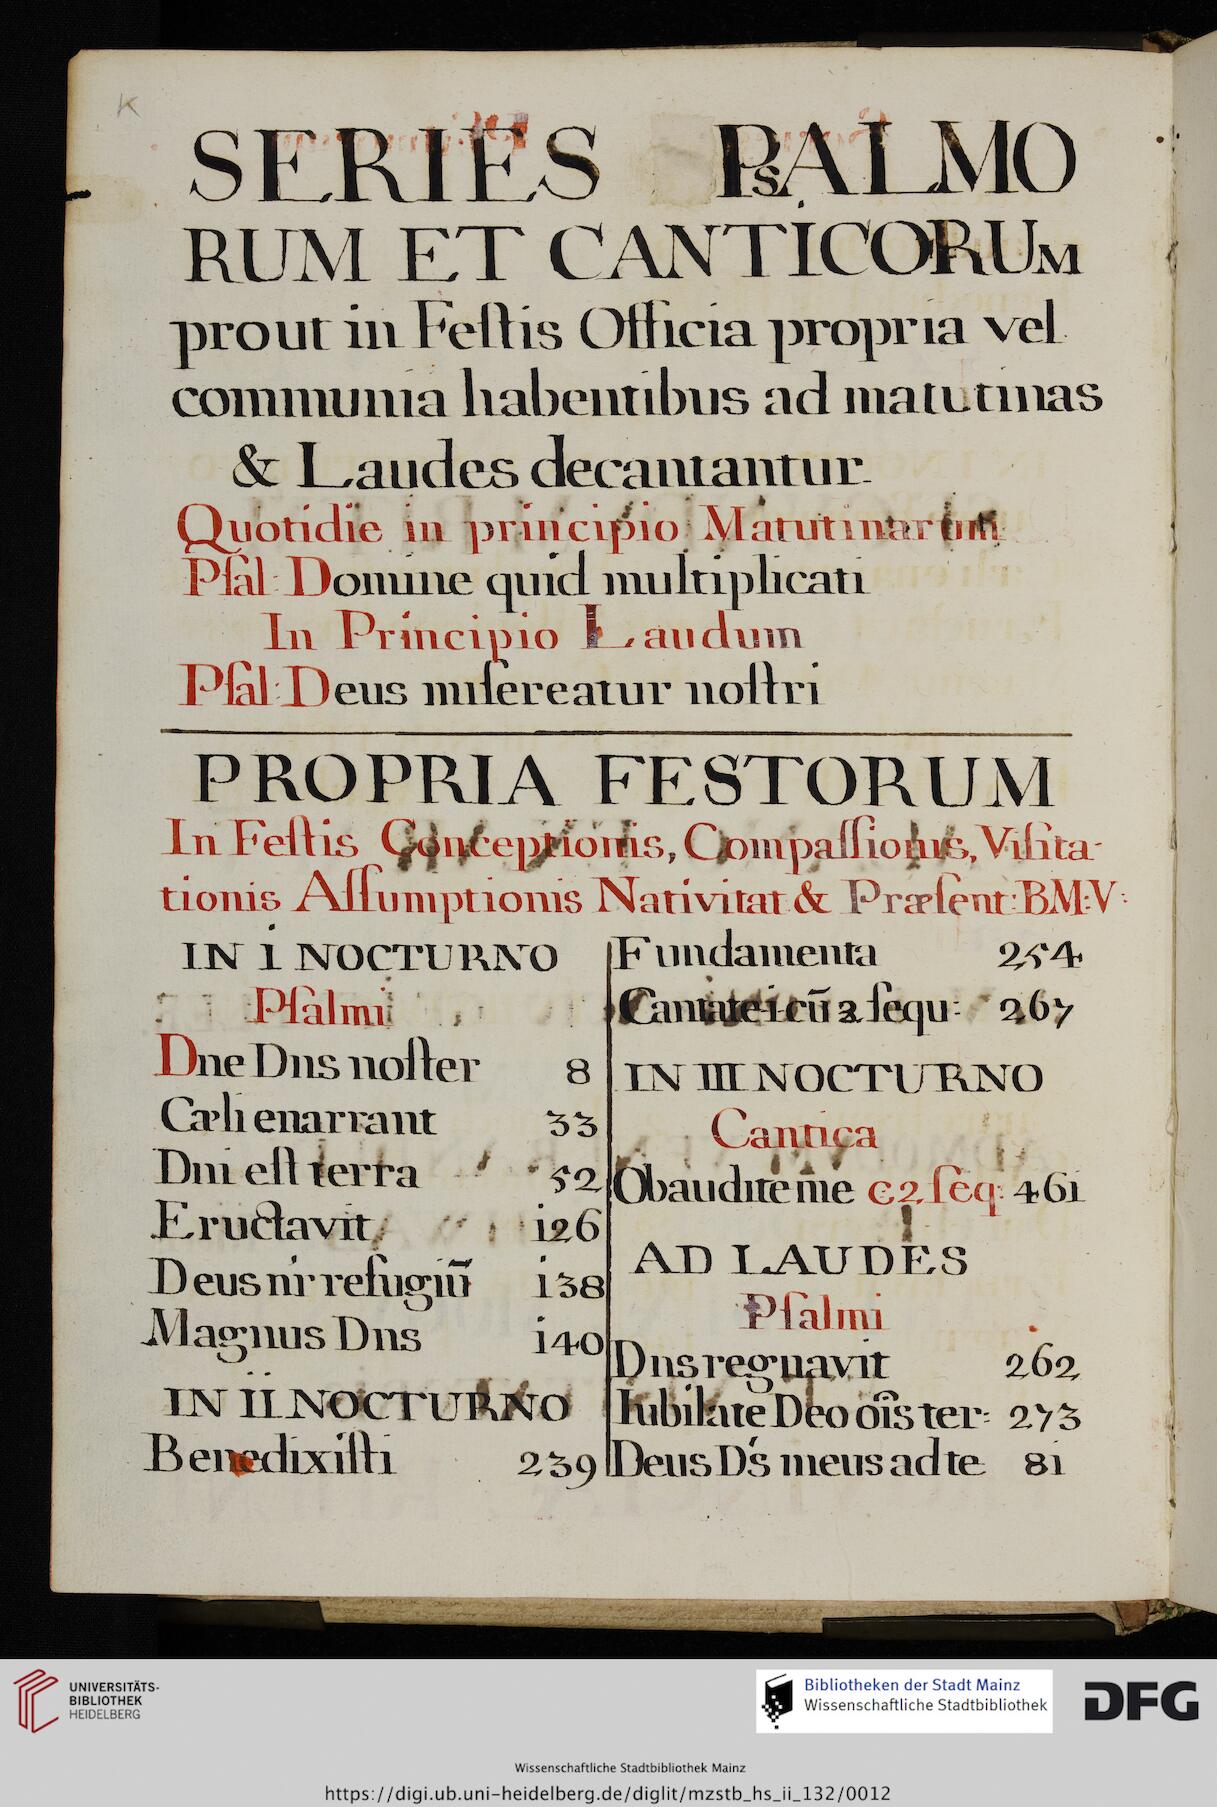 K
SERIES PSALMO
RUM ET CANTICORUM
prout in Feſtis Officia propria vel
communia habentibus ad matutinas
& Laudes decantantur.
Quotidie in principio Matutinarum
Pſal: Domine quid multiplicati
In Principio Laudum
Pſal: Deus miſereatur noſtri
PROPRIA FESTORUM
In Feſtis Conceptionis, Compaſſionis, Viſita-
tionis Aſſumptionis Nativitat & Præſent: BM:V:
IN i NOCTURNO
Pſalmi
Dne Dns noſter 8
Cæli enarrant 33
Dni eſt terra 52
Eructavit i26
Deus nr refugiū i38
Magnus Dns i40
IN ii NOCTURNO
Benedixiſti 239
Fundamenta 254
Cantate i cū 2 ſequ: 267
IN III NOCTURNO
Cantica
Obaudite me c 2 ſeq: 46i
AD LAUDES
Pſalmi
Dns regnavit 262
Iubilate Deo ōis ter: 273
Deus Ds meus ad te 8i
UNIVERSITÄTS-
BIBLIOTHEK
HEIDELBERG
Bibliotheken der Stadt Mainz
Wissenschaftliche Stadtbibliothek
DFG
Wissenschaftliche Stadtbibliothek Mainz
https://digi.ub.uni-heidelberg.de/diglit/mzstb_hs_ii_132/0012